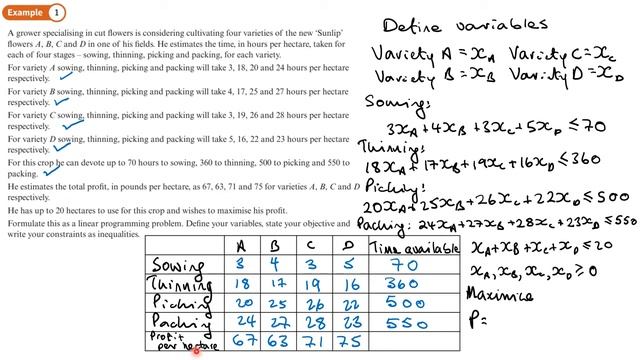 Example 1
A grower specialising in cut flowers is considering cultivating four varieties of the new 'Sunlip'
flowers A, B, C and D in one of his fields. He estimates the time, in hours per hectare, taken for
each of four stages – sowing, thinning, picking and packing, for each variety.
For variety A sowing, thinning, picking and packing will take 3, 18, 20 and 24 hours per hectare
respectively.
For variety B sowing, thinning, picking and packing will take 4, 17, 25 and 27 hours per hectare
respectively.
For variety C sowing, thinning, picking and packing will take 3, 19, 26 and 28 hours per hectare
respectively.
For variety D sowing, thinning, picking and packing will take 5, 16, 22 and 23 hours per hectare
respectively.
For this crop he can devote up to 70 hours to sowing, 360 to thinning, 500 to picking and 550 to
packing.
He estimates the total profit, in pounds per hectare, as 67, 63, 71 and 75 for varieties A, B, C and D
respectively.
He has up to 20 hectares to use for this crop and wishes to maximise his profit.
Formulate this as a linear programming problem. Define your variables, state your objective and
write your constraints as inequalities.
A B C D Time available
Sowing 3 4 3 5 70
Thinning 18 17 19 16 360
Picking 20 25 26 22 500
Packing 24 27 28 23 550
Profit
per hectare 67 63 71 75
Define variables
Variety A = x_A Variety C = x_C
Variety B = x_B Variety D = x_D
Sowing:
3x_A + 4x_B + 3x_C + 5x_D ≤ 70
Thinning:
18x_A + 17x_B + 19x_C + 16x_D ≤ 360
Picking:
20x_A + 25x_B + 26x_C + 22x_D ≤ 500
Packing: 24x_A + 27x_B + 28x_C + 23x_D ≤ 550
x_A + x_B + x_C + x_D ≤ 20
x_A, x_B, x_C, x_D ≥ 0
Maximise
P =